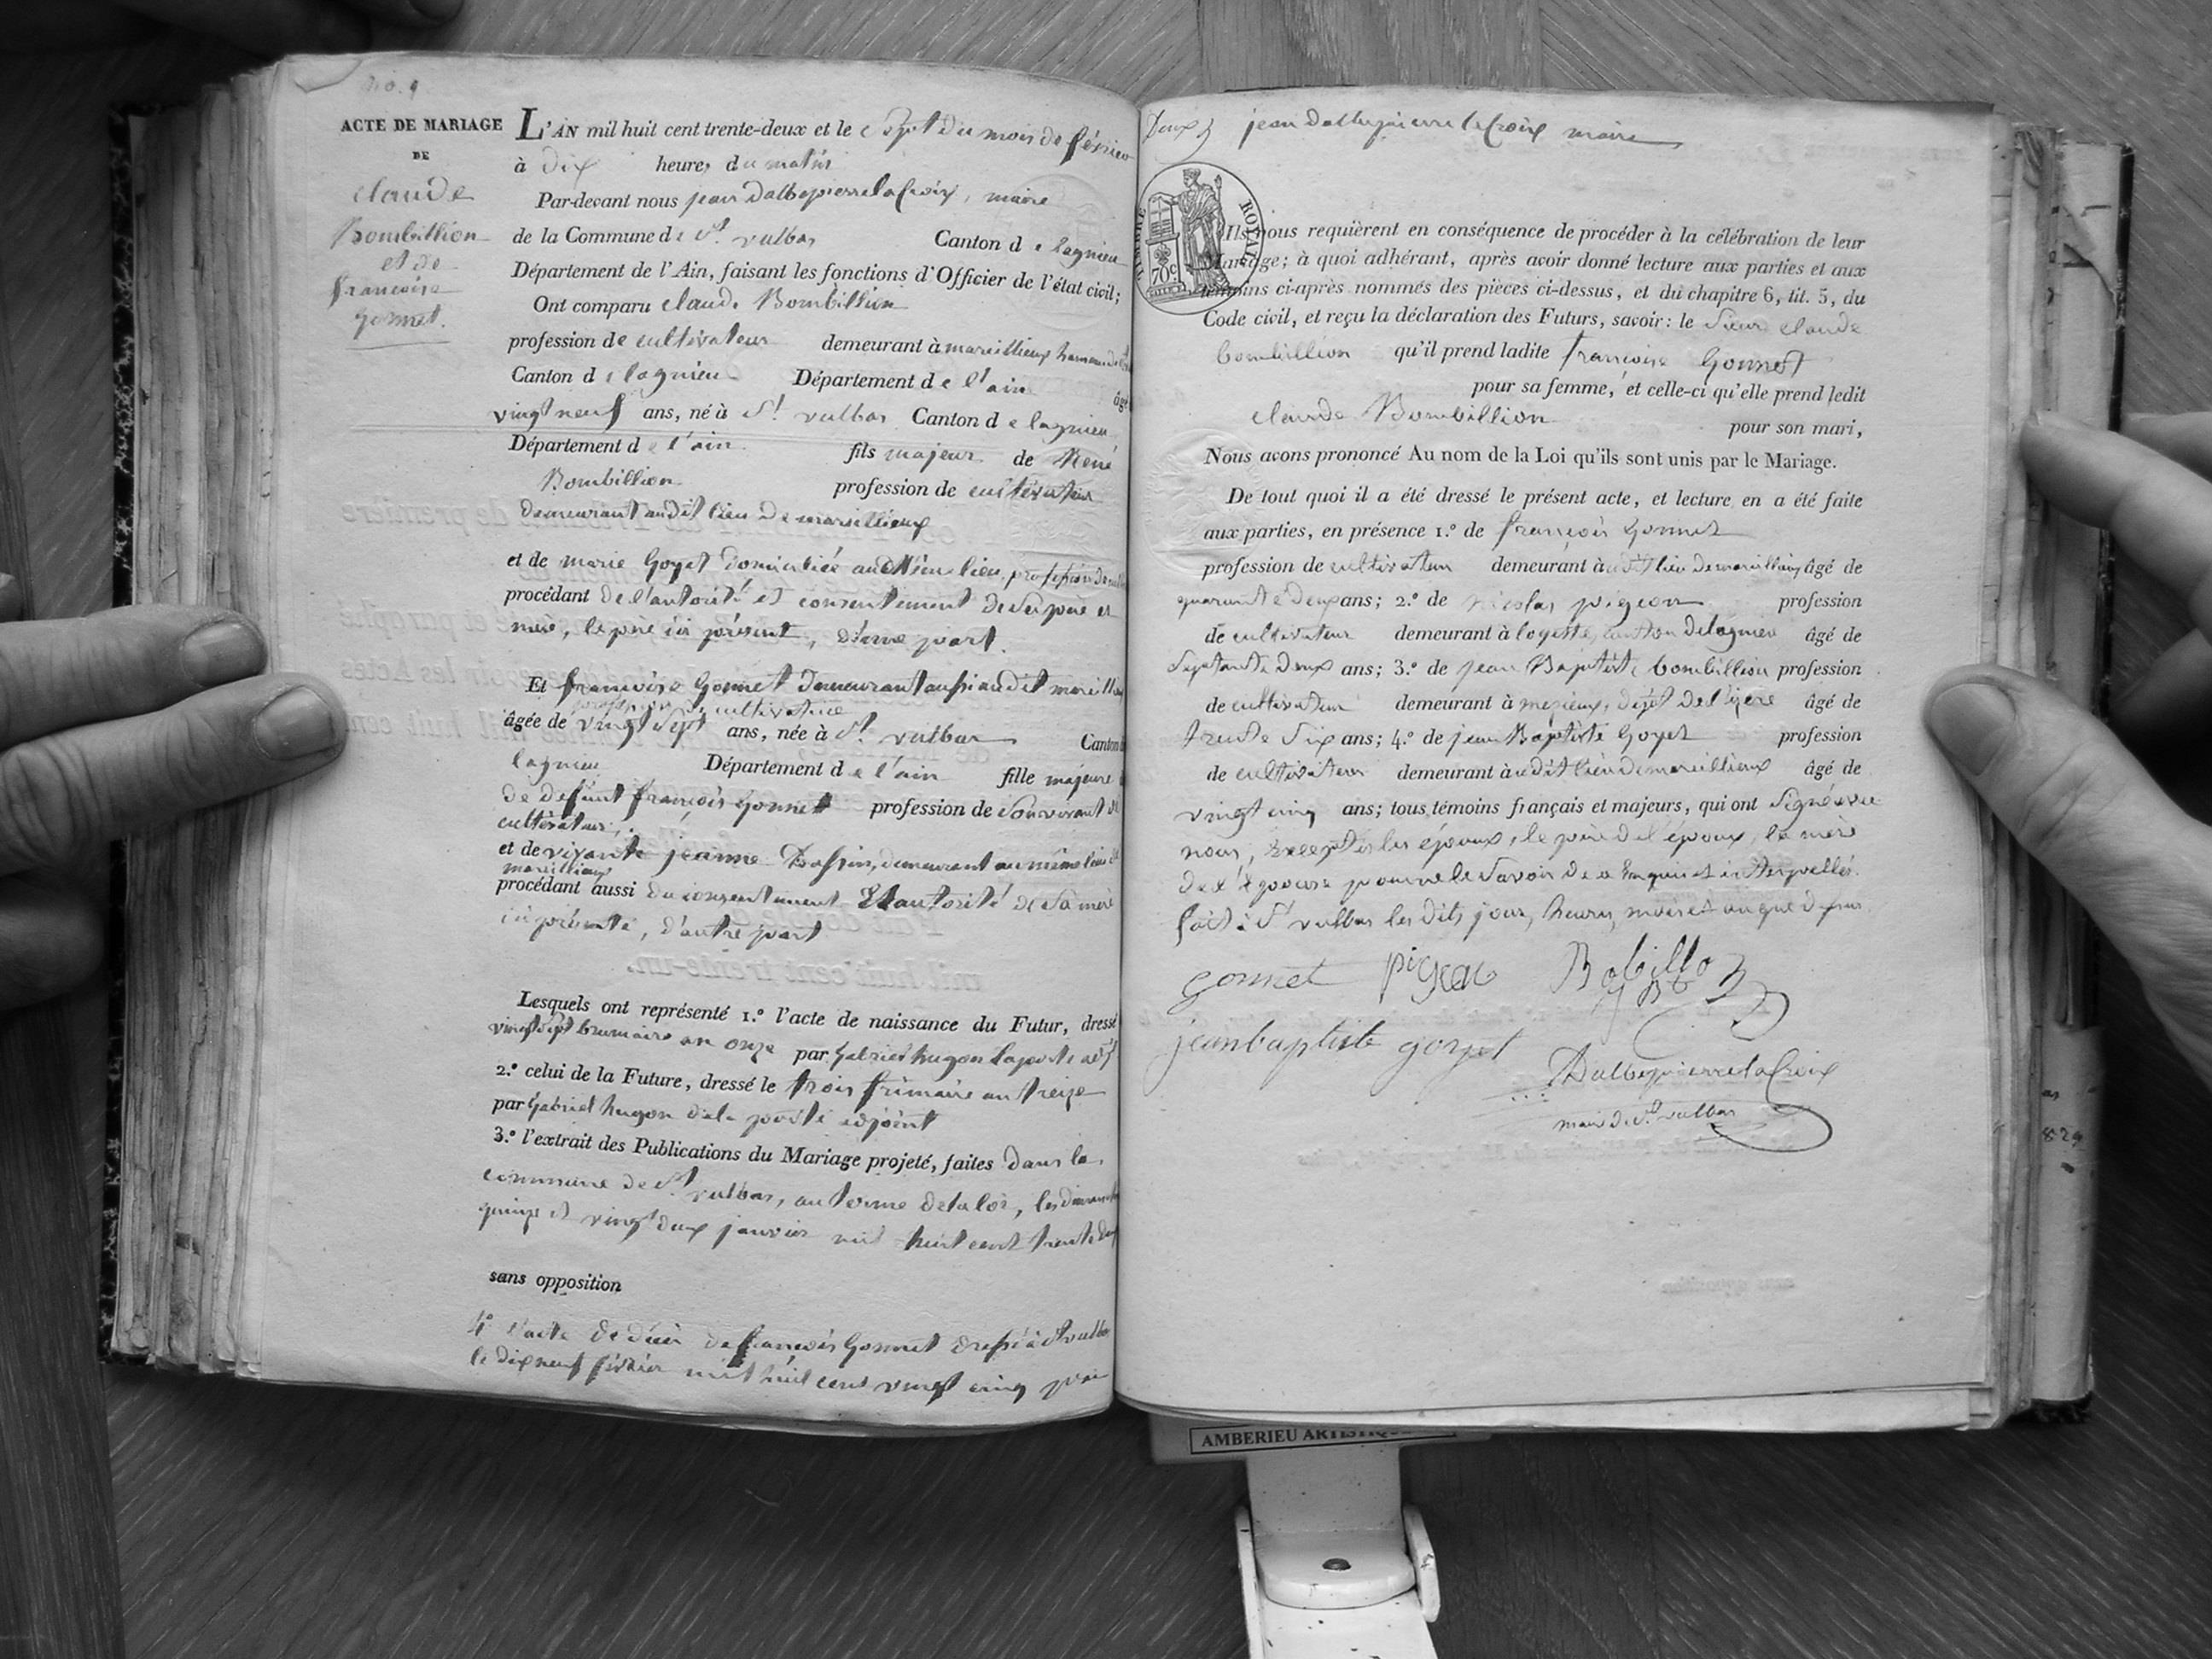 No. 9
ACTE DE MARIAGE
DE
claude
Bombillion
et de
francoise
Gonnet.
L'AN mil huit cent trente-deux et le Sept du mois de février
à dix heures du matin
Par-devant nous jean Dalbepierrelacroix, maire
de la Commune de St. vulbas Canton de lagnieu
Département de l'Ain, faisant les fonctions d'Officier de l'état civil;
Ont comparu claude Bombillion
profession de cultivateur demeurant à marcillieux hameau de
Canton de lagnieu Département de l'ain âgé
vingt neuf ans, né à St. vulbas Canton de lagnieu
Département de l'ain fils majeur de René
Bombillion profession de cultivateur
demeurant audit lieu de marcillieux
et de marie Goyet domiciliée audit lieu, profession de
procédant de l'autorité et consentement de Ses père et
mere, le père ici présent, d'une part.
Et francoise Gonnet demeurant aussi audit marcillieux
profession cultivatrice
âgée de vingt Sept ans, née à St. vulbas Canton
lagnieu Département de l'ain fille majeure
de defunt françois Gonnet profession de Son vivant
cultivateur,
et de vivante jeanne Bassin, demeurant au même lieu de
marcillieux
procédant aussi du consentement Et autorité de Sa mere
ici présente, d'autre part
Lesquels ont représenté 1.º l'acte de naissance du Futur, dressé
vingt Sept brumaire an onze par Gabriel hugon laposte adjt
2.º celui de la Future, dressé le trois frimaire an treize
par Gabriel hugon dela poste adjoint
3.º l'extrait des Publications du Mariage projeté, faites dans la
commune de St. vulbas, au terme de la loi, les dimanches
quinze et vingt deux janvier mil huit cent trente deux
sans opposition
4º l'acte de décès de francois Gonnet dressé à St vulbas
le dix neuf février mil huit cent vingt cinq par
jean dalbepierre lacroix maire
TIMBRE ROYAL
70c
Ils nous requièrent en conséquence de procéder à la célébration de leur
Mariage; à quoi adhérant, après avoir donné lecture aux parties et aux
témoins ci-après nommés des pièces ci-dessus, et du chapitre 6, tit. 5, du
Code civil, et reçu la déclaration des Futurs, savoir: le Sieur claude
bombillion qu'il prend ladite francoise Gonnet
pour sa femme, et celle-ci qu'elle prend ledit
claude Bombillion pour son mari,
Nous avons prononcé Au nom de la Loi qu'ils sont unis par le Mariage.
De tout quoi il a été dressé le présent acte, et lecture en a été faite
aux parties, en présence 1.º de françois Gonnet
profession de cultivateur demeurant à udit lieu de marcillieux âgé de
quarante deux ans; 2.º de nicolas pigeon profession
de cultivateur demeurant à loyette, canton de lagnieu âgé de
Septante Deux ans; 3.º de jean Baptiste bombillion profession
de cultivateur demeurant à mezieux, dépt de l'izère âgé de
trente Six ans; 4.º de jean Baptiste Goyet profession
de cultivateur demeurant à udit lieu de marcillieux âgé de
vingt cinq ans; tous témoins français et majeurs, qui ont Signé avec
nous, exceptés les époux, le père de l'époux, la mère
de l'épouse pour ne le Savoir de ce Enquis et interpellés.
fait à St vulbas les dits jour, heure, mois et an que dessus
gonnet pigeon Bobillon
jeanbaptiste goyet
Dalbepierrelacroix
maire de St. vulbas
829
AMBERIEU